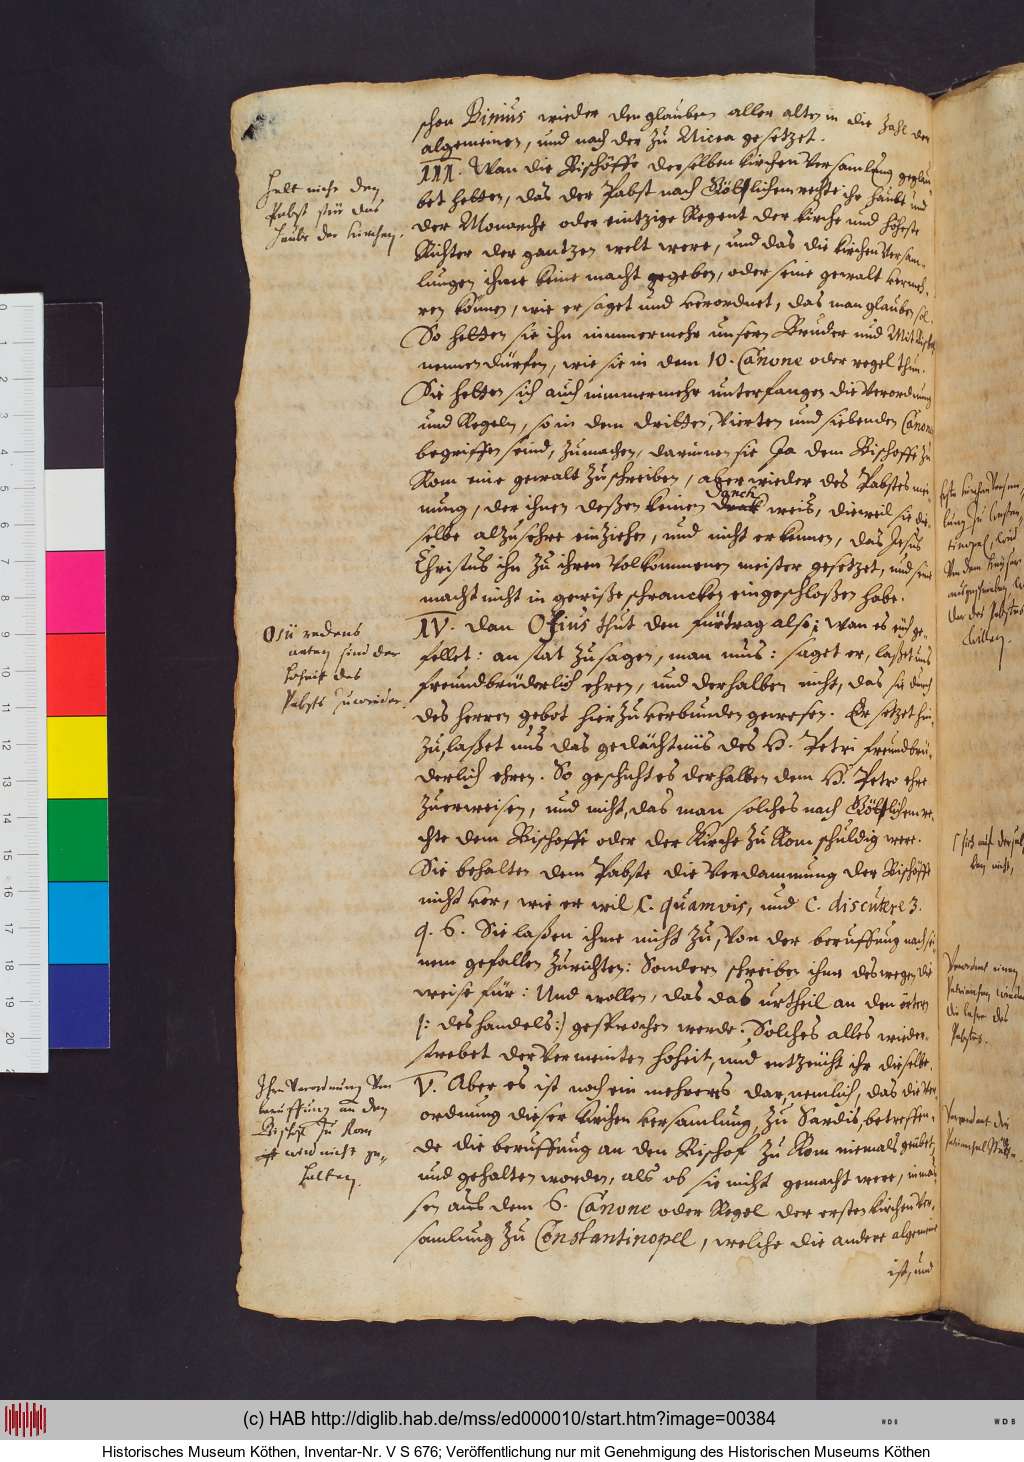 schon Binius wieder den glauben aller alten in die Zahl der
algemeinen, und nach der zu Nicea gesetzet.
III. Wan die Bischöffe derselben Kirchen Versamlung geglau-
bet hetten, das der Pabst nach Göttlichem rechte ihr haubt und
der Monarche oder eintzige Regent der Kirche und höheste
Richter der gantzen welt were, und das die Kirchen Versam-
lungen ihme keine macht gegeben, oder seine gewalt vermeh-
ren können, wie er saget und verordnet, das man glauben sol.
So hetten sie ihn nimmermehr unsern Bruder und Mit Bischof
nennen dürfen, wie sie in dem 10. Canone oder regel thun.
Sie hetten sich auch nimmermehr unterfangen die Verordnung
und Regeln, so in dem dritten, Vierten und siebenden Canone
begriffen seind, zumachen, darinnen sie Ja dem Bischoffe zu
Rom eine gewalt zuschreiben, aber wieder des Pabstes mei-
nung, der ihnen deßen keinen Danck weis, dieweil sie die-
selbe alzusehre einziehen, und nicht erkennen, das Jesus
Christus ihn zu ihren Volkommenen meister gesetzet, und seine
macht nicht in gewiße schrancken eingeschloßen habe.
IV. Dan Osius thut den fürtrag also; wan es euch ge-
fellet: an stat zusagen, man mus: saget er, laßet uns
freundbrüderlich ehren, und derhalben nicht, das sie durch
des Herren gebot hierzu verbunden gewesen. Er setzet hin-
zu, laßet uns das gedächtnüs des H. Petri freundbrü-
derlich ehren. So geschicht es derhalben dem H. Petro ehre
zuerweisen, und nicht, das man solches nach Göttlichem re-
chte dem Bischoffe oder der Kirche zu Rom schuldig were.
Sie behalten dem Pabste die Verdammung der Bischöffe
nicht vor, wie er wil C. quamvis, und C. discutere 3.
q. 6. Sie laßen ihme nicht zu, von der beruffung nach sei-
nem gefallen zurichten: Sondern schreiben ihme deswegen die
weise für: Und wollen, das das urtheil an den örtern
(: des handels:) gesprochen werde. Solches alles wieder-
strebet der Vermeinten hoheit, und entzeucht ihr dieselbe.
V. Aber es ist noch ein mehrers dar, nemlich, das die Ver-
ordnung dieser Kirchen versamlung, zu Sardis, betreffen-
de die beruffung an den Bischof zu Rom niemals geübet,
und gehalten worden, als ob sie nicht gemacht were, inma-
sen aus dem 6. Canone oder Regel der ersten Kirchen Ver-
samlung zu Constantinopel, welche die andere algemeine
ist, und
Helt nicht den
Pabst für das
Haubt der Kirchen.
Osii redens
arten sind der
Hoheit des
Pabsts zuwieder.
Ihre Verordnung Von
beruffung an den
Bischof zu Rom
wird nicht ge-
halten.
(c) HAB http://diglib.hab.de/mss/ed000010/start.htm?image=00384
Historisches Museum Köthen, Inventar-Nr. V S 676; Veröffentlichung nur mit Genehmigung des Historischen Museums Köthen